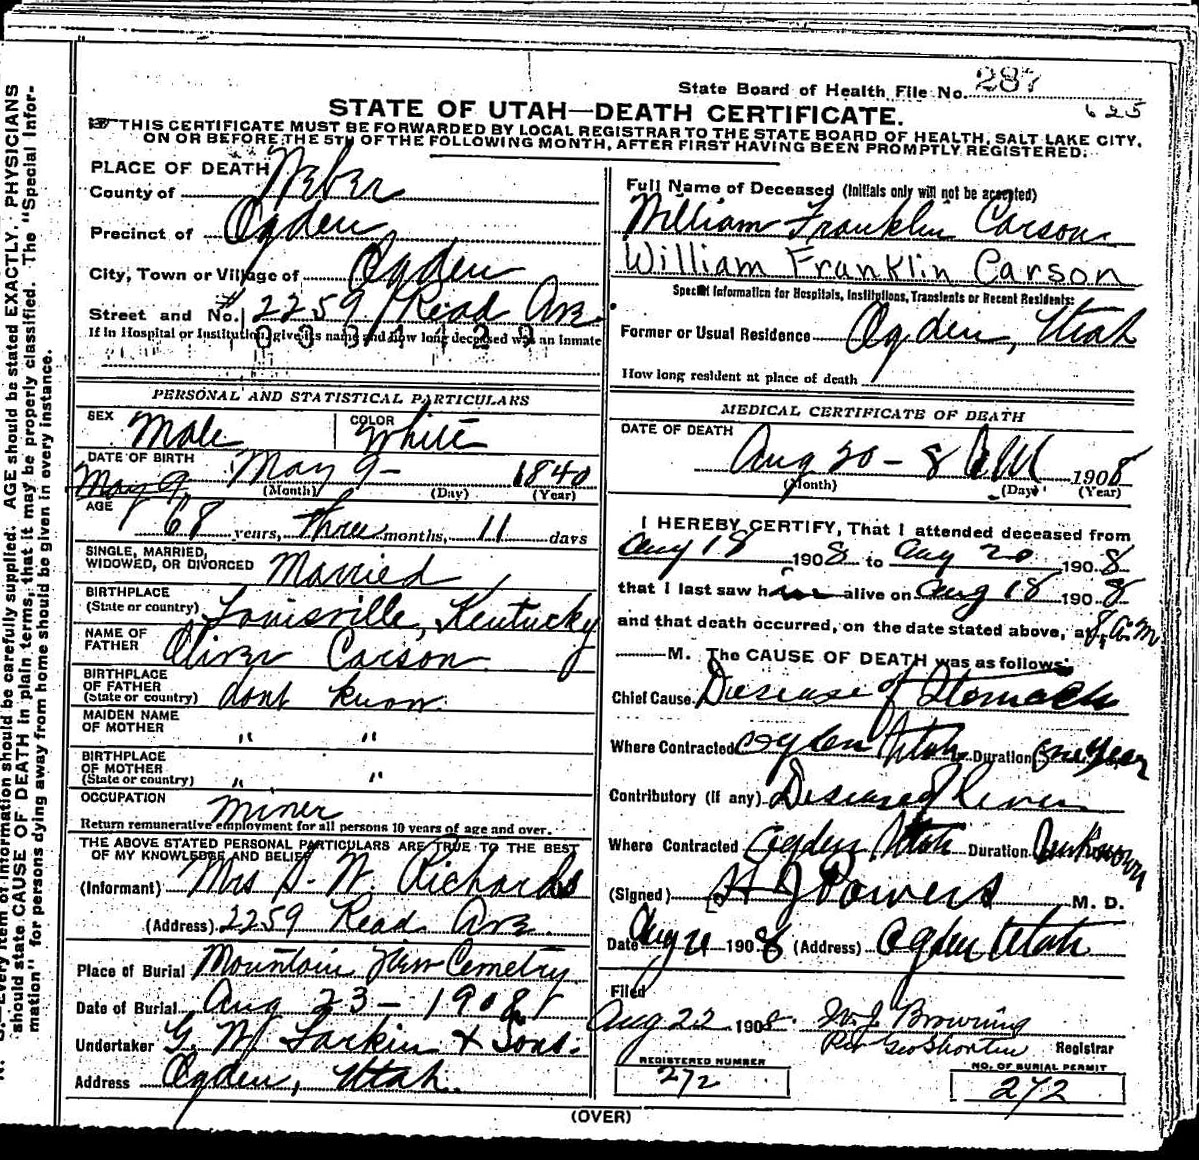 State Board of Health File No. 287
625
STATE OF UTAH—DEATH CERTIFICATE.
THIS CERTIFICATE MUST BE FORWARDED BY LOCAL REGISTRAR TO THE STATE BOARD OF HEALTH, SALT LAKE CITY,
ON OR BEFORE THE 5TH OF THE FOLLOWING MONTH, AFTER FIRST HAVING BEEN PROMPTLY REGISTERED.
PLACE OF DEATH
County of Weber
Precinct of Ogden
City, Town or Village of Ogden
Street and No. # 2259 Read Ave
If in Hospital or Institution, give its name and how long deceased was an inmate
Full Name of Deceased (Initials only will not be accepted)
William Franklin Carson
William Franklin Carson
Special Information for Hospitals, Institutions, Transients or Recent Residents:
Former or Usual Residence Ogden, Utah
How long resident at place of death
PERSONAL AND STATISTICAL PARTICULARS
SEX Male COLOR White
DATE OF BIRTH May 9 - 1840
May 9
(Month) (Day) (Year)
AGE 68 years, three months, 11 days
SINGLE, MARRIED,
WIDOWED, OR DIVORCED Married
BIRTHPLACE
(State or country) Louisville, Kentucky
NAME OF
FATHER Oliver Carson
BIRTHPLACE
OF FATHER
(State or country) dont know
MAIDEN NAME
OF MOTHER " "
BIRTHPLACE
OF MOTHER
(State or country) " "
OCCUPATION Miner
Return remunerative employment for all persons 10 years of age and over.
THE ABOVE STATED PERSONAL PARTICULARS ARE TRUE TO THE BEST
OF MY KNOWLEDGE AND BELIEF
(Informant) Mrs S. W. Richards
(Address) 2259 Read Ave.
Place of Burial Mountain View Cemetry
Date of Burial Aug 23 - 1908
Undertaker G. W. Larkin & Sons.
Address Ogden, Utah.
MEDICAL CERTIFICATE OF DEATH
DATE OF DEATH
Aug 20 - 8 AM 1908
(Month) (Day) (Year)
I HEREBY CERTIFY, That I attended deceased from
Aug 18 1908 to Aug 20 1908
that I last saw him alive on Aug 18 1908
and that death occurred, on the date stated above, at 8 A.M.
M. The CAUSE OF DEATH was as follows:
Chief Cause Disease of Stomach
Where Contracted Ogden Utah Duration One Year
Contributory (if any) Diseased Liver
Where Contracted Ogden Utah Duration Unknown
(Signed) H J Powers M. D.
Date Aug 21 1908 (Address) Ogden Utah
Filed
Aug 22 1908 W. J. Browning
Per Geo Shorten Registrar
REGISTERED NUMBER
272
NO. OF BURIAL PERMIT
272
(OVER)
N. B.—Every item of information should be carefully supplied. AGE should be stated EXACTLY. PHYSICIANS
should state CAUSE OF DEATH in plain terms, that it may be properly classified. The "Special Infor-
mation" for persons dying away from home should be given in every instance.